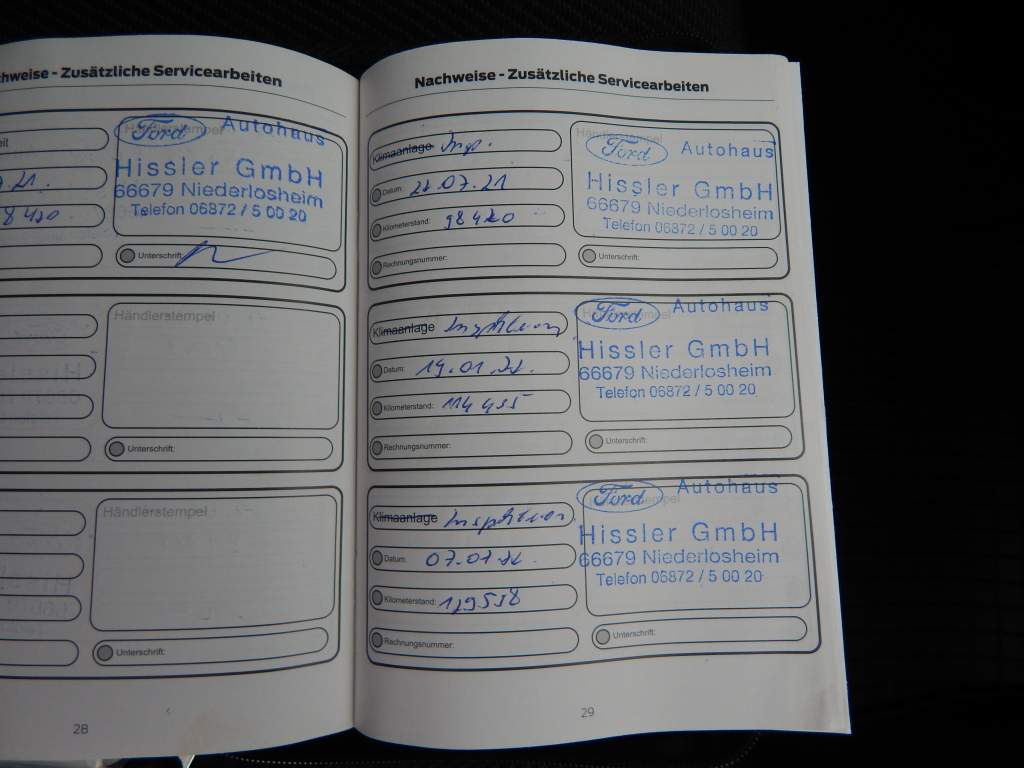 chweise - Zusätzliche Servicearbeiten
Händlerstempel
Ford Autohaus
Hissler GmbH
66679 Niederlosheim
Telefon 06872 / 5 00 20
.21.
8420
Unterschrift:
Händlerstempel
Unterschrift:
Händlerstempel
Unterschrift:
28
Nachweise - Zusätzliche Servicearbeiten
Klimaanlage Insp.
Datum:
Kilometerstand: 98420
Rechnungsnummer:
Händlerstempel
Ford Autohaus
Hissler GmbH
66679 Niederlosheim
Telefon 06872 / 5 00 20
Unterschrift:
Klimaanlage Inspektion
Datum: 19.01.
Kilometerstand: 114
Rechnungsnummer:
Ford Autohaus
Hissler GmbH
66679 Niederlosheim
Telefon 06872 / 5 00 20
Unterschrift:
Klimaanlage Inspektion
Datum: 07.07
Kilometerstand:
Rechnungsnummer:
Ford Autohaus
Hissler GmbH
66679 Niederlosheim
Telefon 06872 / 5 00 20
Unterschrift:
29